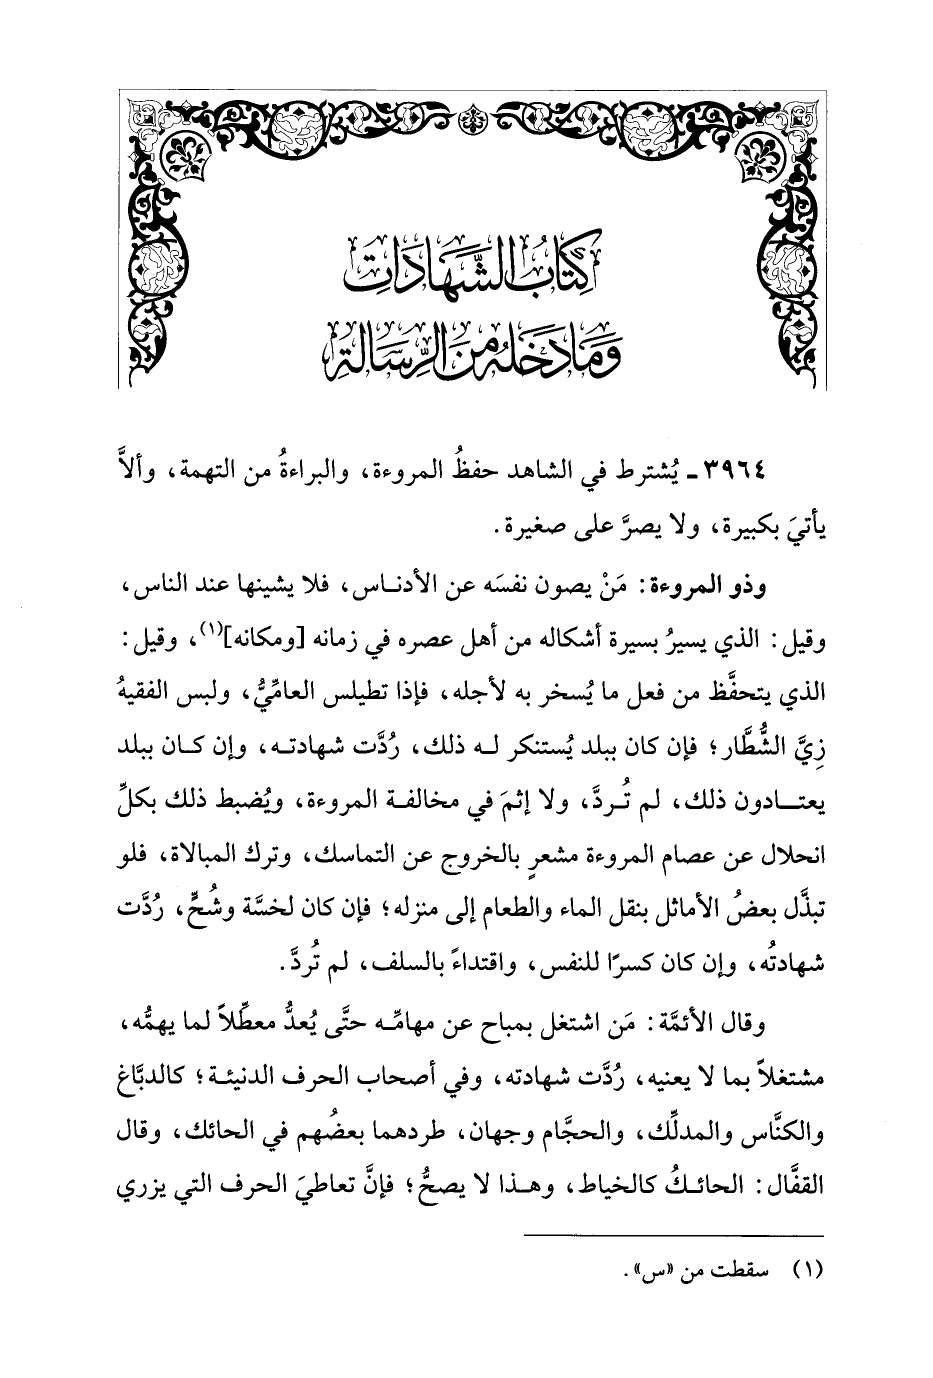 كِتَابُ الشَّهَادَاتِ
وَمَا دَخَلَهُ مِنَ الرِّسَالَةِ
٣٩٦٤ ـ يُشترط في الشاهد حفظُ المروءة، والبراءةُ من التهمة، وألاَّ
يأتيَ بكبيرة، ولا يصرَّ على صغيرة.
وذو المروءة: مَنْ يصون نفسَه عن الأدناس، فلا يشينها عند الناس،
وقيل: الذي يسيرُ بسيرة أشكاله من أهل عصره في زمانه [ومكانه](١)، وقيل:
الذي يتحفَّظ من فعل ما يُسخر به لأجله، فإذا تطيلس العاميُّ، ولبس الفقيهُ
زِيَّ الشُّطَّار؛ فإن كان ببلد يُستنكر له ذلك، رُدَّت شهادته، وإن كان ببلد
يعتادون ذلك، لم تُردَّ، ولا إثمَ في مخالفة المروءة، ويُضبط ذلك بكلِّ
انحلال عن عصام المروءة مشعرٍ بالخروج عن التماسك، وترك المبالاة، فلو
تبذَّل بعضُ الأماثل بنقل الماء والطعام إلى منزله؛ فإن كان لخسَّة وشُحٍّ، رُدَّت
شهادتُه، وإن كان كسرًا للنفس، واقتداءً بالسلف، لم تُردَّ.
وقال الأئمَّة: مَن اشتغل بمباح عن مهامِّه حتَّى يُعدُّ معطِّلاً لما يهمُّه،
مشتغلاً بما لا يعنيه، رُدَّت شهادته، وفي أصحاب الحرف الدنيئة؛ كالدبَّاغ
والكنَّاس والمدلِّك، والحجَّام وجهان، طردهما بعضُهم في الحائك، وقال
القفَّال: الحائكُ كالخياط، وهذا لا يصحُّ؛ فإنَّ تعاطيَ الحرف التي يزري
(١) سقطت من «س».